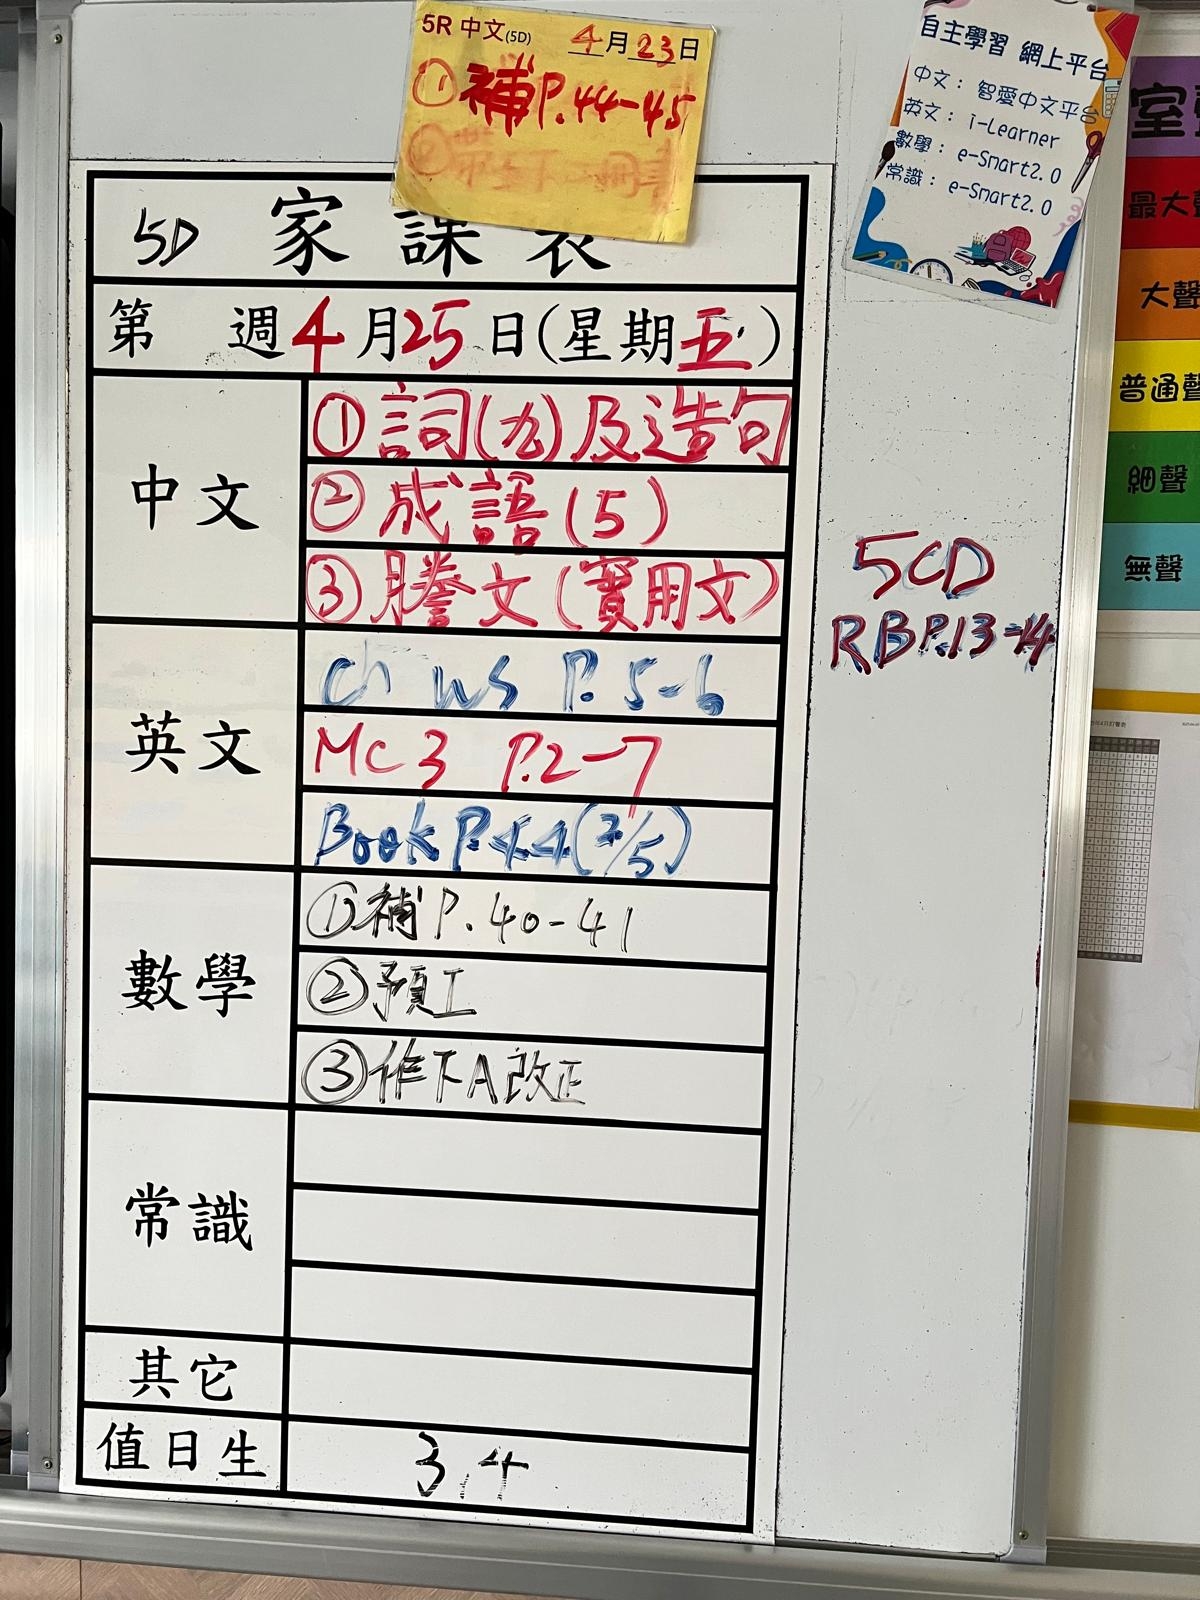 5R 中文(5D) 4月23日
① 補P.44-45
自主學習 網上平台
中文：智愛中文平台
英文：i-Learner
數學：e-Smart2.0
常識：e-Smart2.0
5D 家課表
第 週 4月25日(星期五)
中文
①詞(九)及造句
②成語(5)
③謄文(實用文)
英文
Ch WS P.5-6
MC 3 P.2-7
Book P.44(2/5)
數學
①補P.40-41
②預工
③作下A改正
常識
其它
值日生
3,4
5CD
RB P.13-14
室
最大聲
大聲
普通聲
細聲
無聲